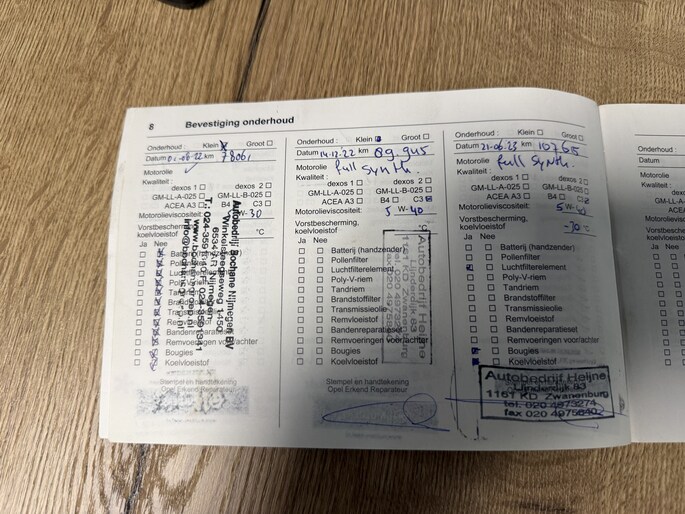 8 Bevestiging onderhoud
Onderhoud : Klein Groot
Datum 0 -08-22 km
Motorolie
Kwaliteit :
dexos 1 dexos 2
GM-LL-A-025 GM-LL-B-025
ACEA A3 B4 C3
Motorolieviscositeit: W- 30
Vorstbescherming,
koelvloeistof °C
Ja Nee
Batterij
Pollen
Luchtfilter
Poly-V
Tandriem
Brandstof
Remvloeistof
Bandenreparatieset
Remvoeringen voor/achter
Bougies
Koelvloeistof
Stempel en handtekening
Opel Erkend Reparateur
Autobedrijf Bochane Nijmegen BV
Winkelsteegseweg 150
Nijmegen
Onderhoud : Klein Groot
Datum 14-12-22 km
Motorolie full synth.
Kwaliteit :
dexos 1 dexos 2
GM-LL-A-025 GM-LL-B-025
ACEA A3 B4 C3
Motorolieviscositeit: 5 W- 40
Vorstbescherming,
koelvloeistof °C
Ja Nee
Batterij (handzender)
Pollenfilter
Luchtfilterelement
Poly-V-riem
Tandriem
Brandstoffilter
Transmissieolie
Remvloeistof
Bandenreparatieset
Remvoeringen voor/achter
Bougies
Koelvloeistof
Autobedrijf Heijne
Stempel en handtekening
Opel Erkend Reparateur
Onderhoud : Klein Groot
Datum 21-06-23 km 107615
Motorolie full synth.
Kwaliteit :
dexos 1 dexos 2
GM-LL-A-025 GM-LL-B-025
ACEA A3 B4 C3
Motorolieviscositeit: 5 W- 40
Vorstbescherming,
koelvloeistof -30 °C
Ja Nee
Batterij (handzender)
Pollenfilter
Luchtfilterelement
Poly-V-riem
Tandriem
Brandstoffilter
Transmissieolie
Remvloeistof
Bandenreparatieset
Remvoeringen voor/achter
Bougies
Koelvloeistof
Autobedrijf Heijne
1161 KD Zwanenburg
tel. 020 4975274
fax 020 4975640